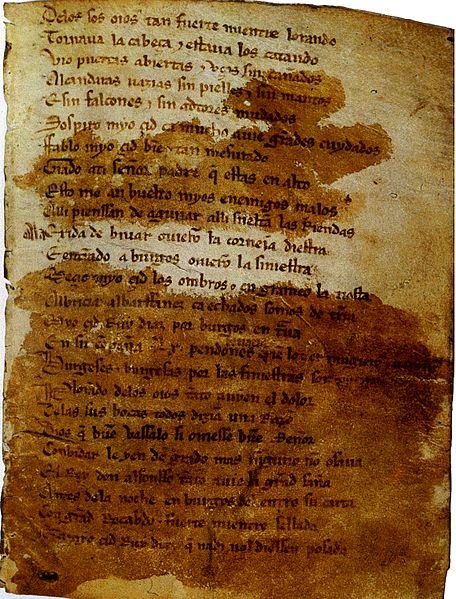 Delos sos oios tan fuerte mientre lorando
Tornava la cabeça ⁊ estava los catando
Vio puertas abiertas ⁊ vços sin cañados
Alcandaras uazias sin pielles ⁊ sin mantos
E sin falcones ⁊ sin adtores mudados
Sospiro myo çid ca mucho auie grãdes cuydados
Fablo myo çid bien ⁊ tan mesurado
Grado ati señor padre q̃ estas en alto
Esto me an buelto myos enemigos malos
Alli pienssan de aguiiar alli sueltan las Riendas
Ala exida de biuar ouierõ la corneia diestra
E entrando a burgos ouierõ la siniestra
Meçio myo çid los ombros ⁊ en grameo la tiesta
Albricia albarffanez ca echados somos de tierra
Myo çid Ruy diaz por burgos en traua
En su conpaña Lx pendones
Burgeses ⁊ burgesas por las finiestras son
Plorando delos oios tãto auyen el dolor
Delas sus bocas todos dizian una Razõ
Dios q̃ buẽ vassalo si ouiesse buẽ Señor
Conbidar le yen de grado mas ninguno no osaua
El Rey don alfonsso tãto auie la grãd saña
Antes dela noche en burgos del entro su carta
Con grãd Recabdo ⁊ fuerte mientre sellada
Que a myo çid Ruy diaz q̃ nadi nol diessen posada